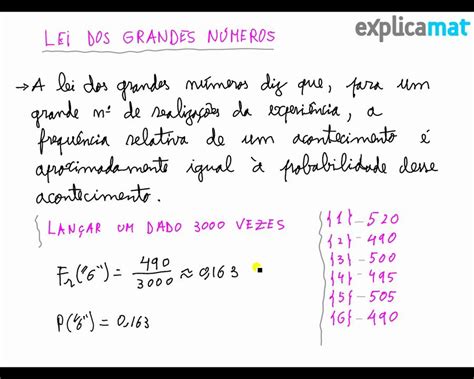 explicamat
LEI DOS GRANDES NÚMEROS
→ A lei dos grandes números diz que, para um
grande nº de realizações da experiência, a
frequência relativa de um acontecimento é
aproximadamente igual à probabilidade desse
acontecimento.
LANÇAR UM DADO 3000 VEZES
Fr("6") = 490/3000 ≈ 0,163
P("6") = 0,163
{1} - 520
{2} - 490
{3} - 500
{4} - 495
{5} - 505
{6} - 490